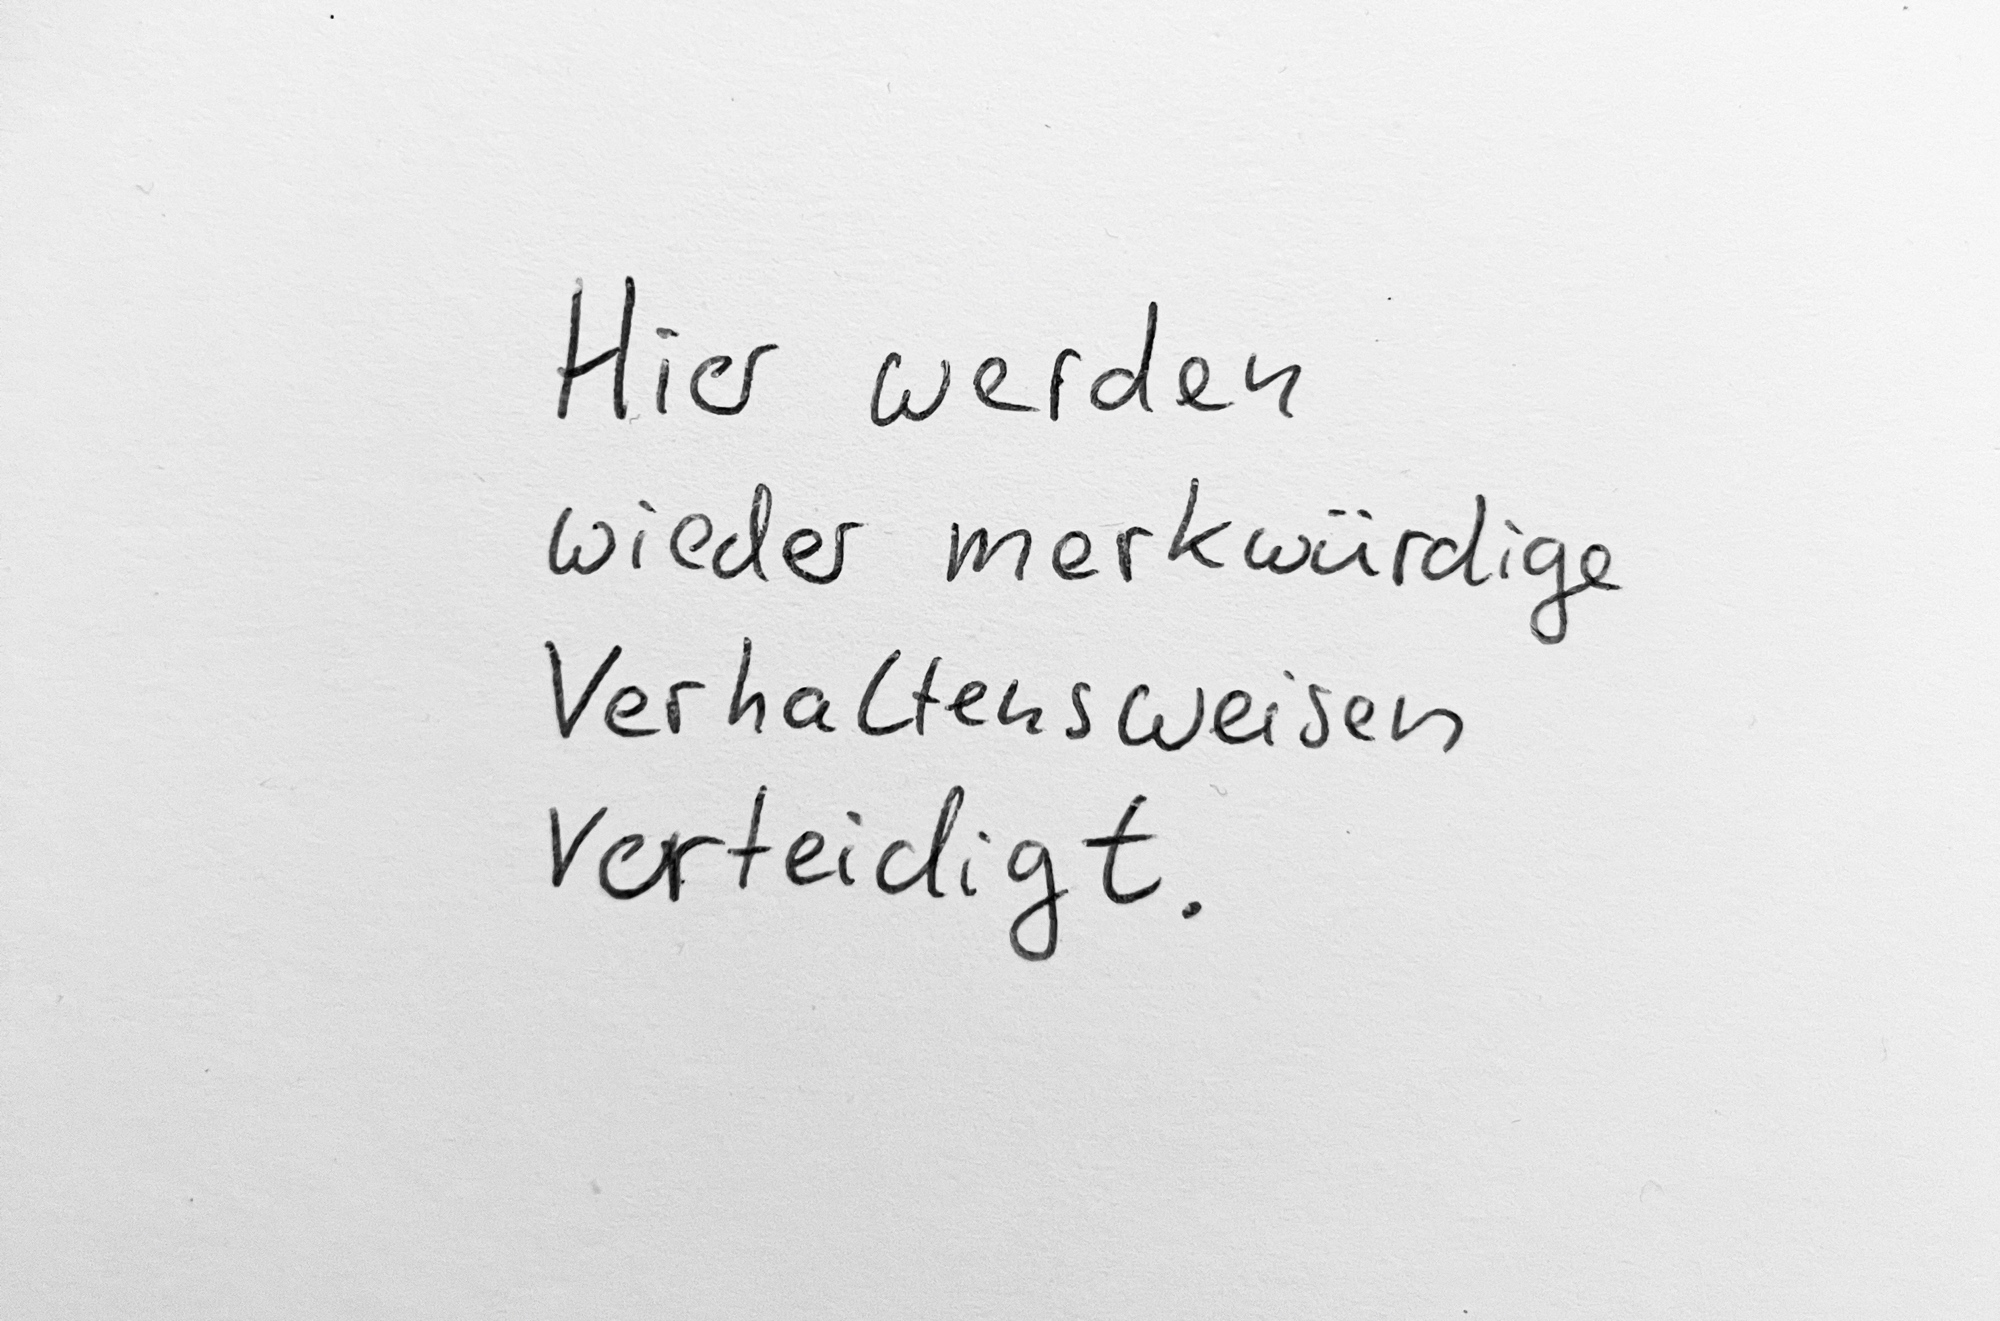 Hier werden
wieder merkwürdige
Verhaltensweisen
verteidigt.